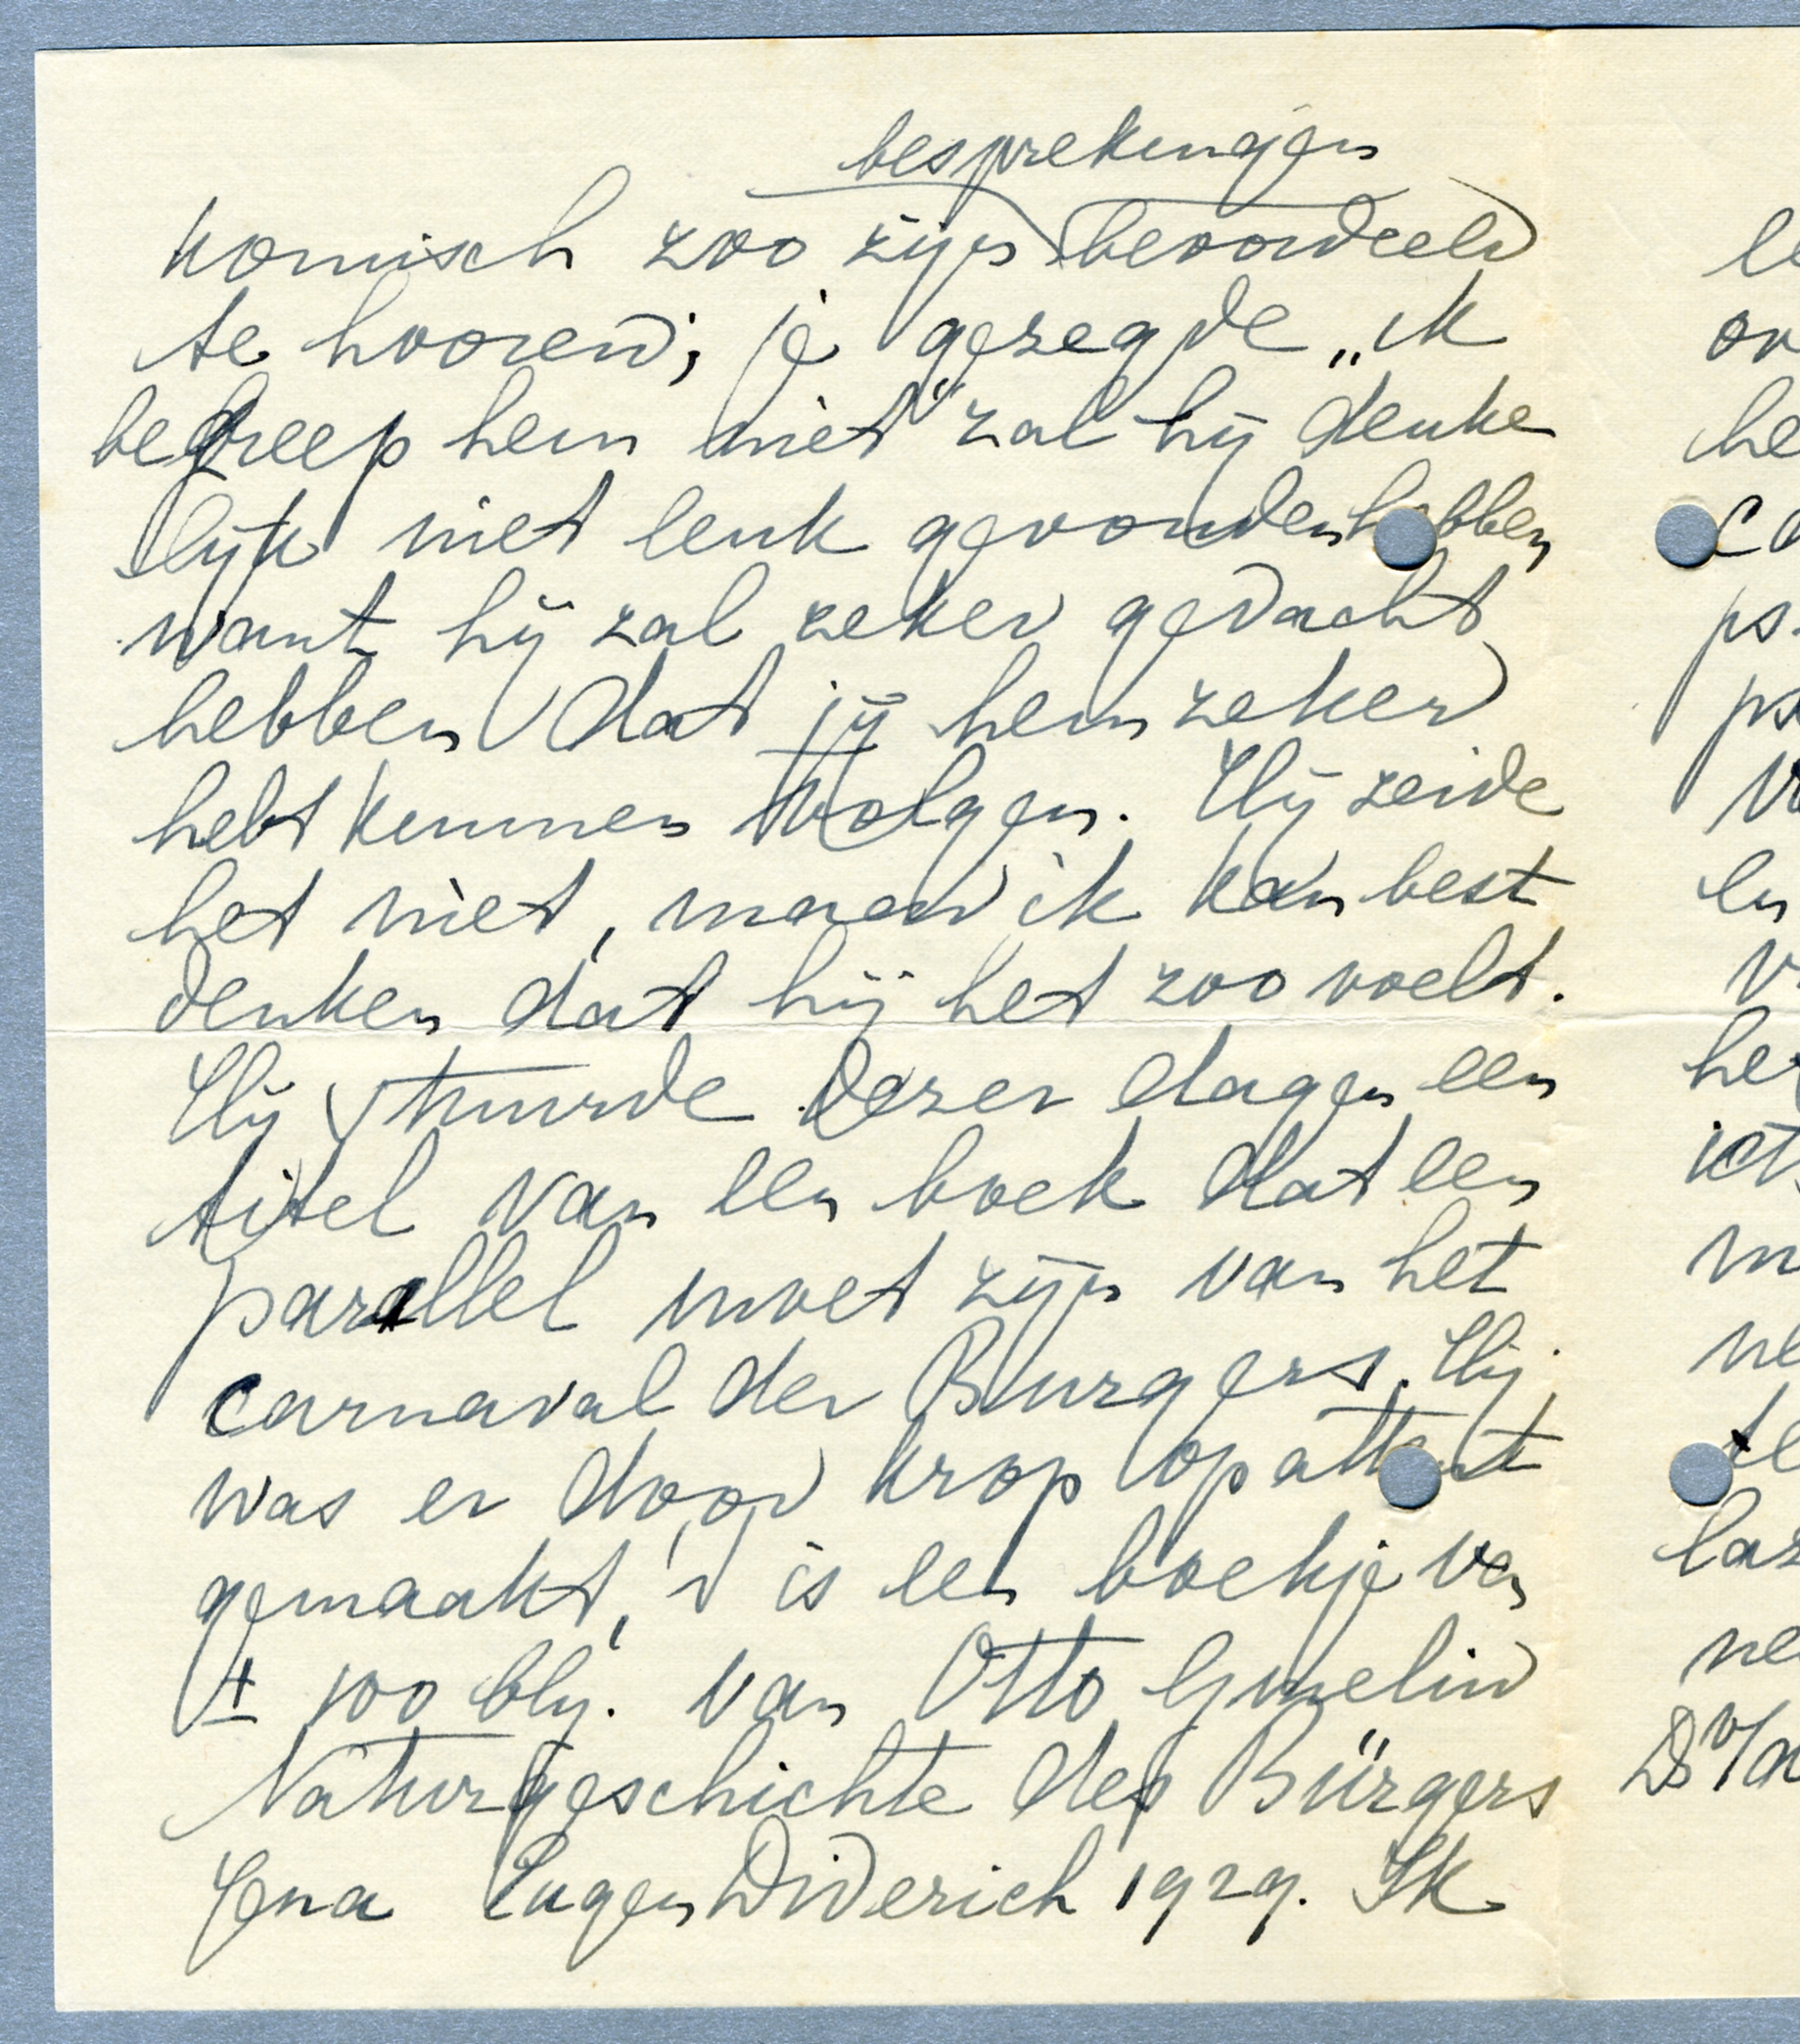 besprekingen
komisch zoo zijn beoordeeld
te hooren; je gezegde „ik
begreep hem niet" zal hij denke
lijk niet leuk gevonden hebben
want hij zal zeker gedacht
hebben dat jij hem zeker
hebt kunnen volgen. Hij zeide
het niet, maar ik kan best
denken dat hij het zoo voelt.
Hij stuurde dezer dagen een
titel van een boek dat een
parallel moet zijn van het
carnaval der Burgers. Hij
was er door Krop op attent
gemaakt, 't is een boekje van
± 100 blz. van Otto Gmelin
Naturgeschichte des Bürgers
Jena Eugen Diderich 1929. Ik
le
ov
he
ca
ps.
ps
en
v
her
iets
m
ne
te
laz
ne